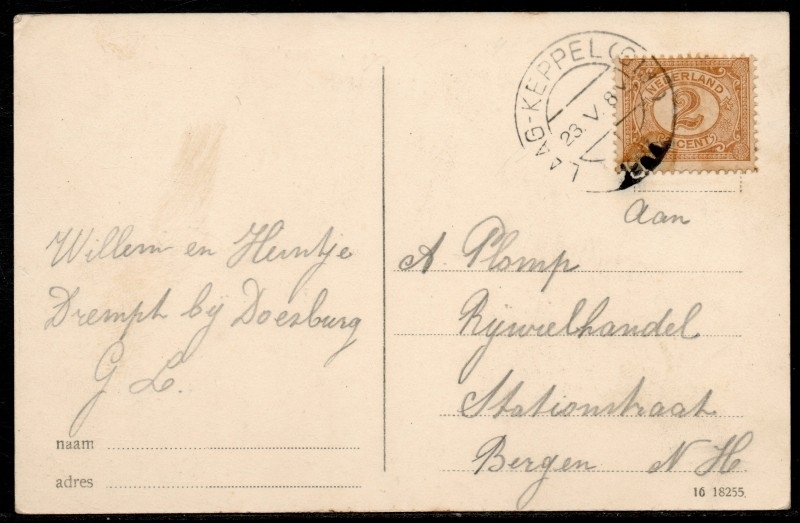 LAAG-KEPPEL (GLD
23.V. 8V
NEDERLAND
2
CENT
Aan
Willem en Heintje
Drempt bij Doesburg
G L.
A Plomp
Rijwielhandel
Stationstraat
Bergen N H
naam
adres
16 18255.